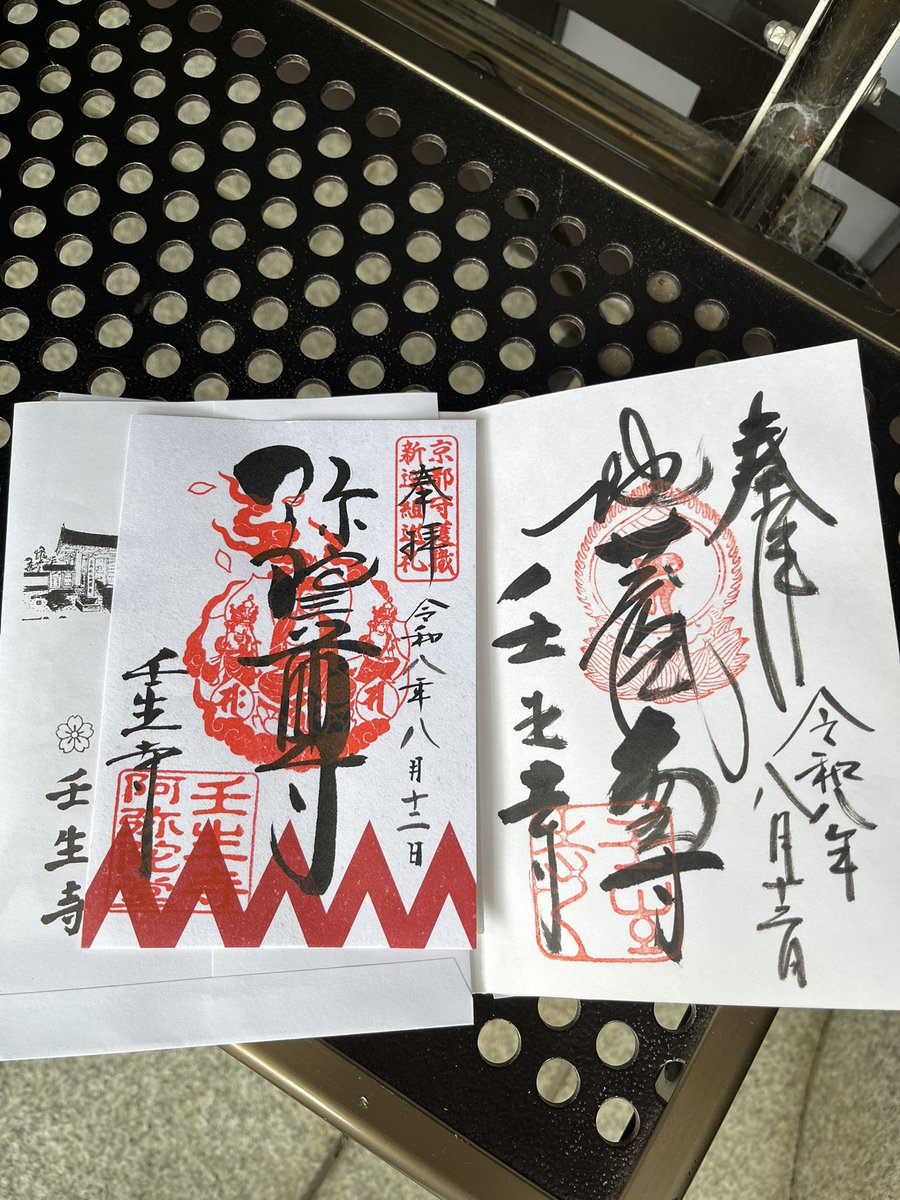 奉拝
令和八年
八月十二日
地蔵尊
壬生寺
京都守護職
新選組巡礼
奉拝
令和八年八月十二日
弥陀尊
壬生寺
壬生寺
阿弥陀堂
壬生寺